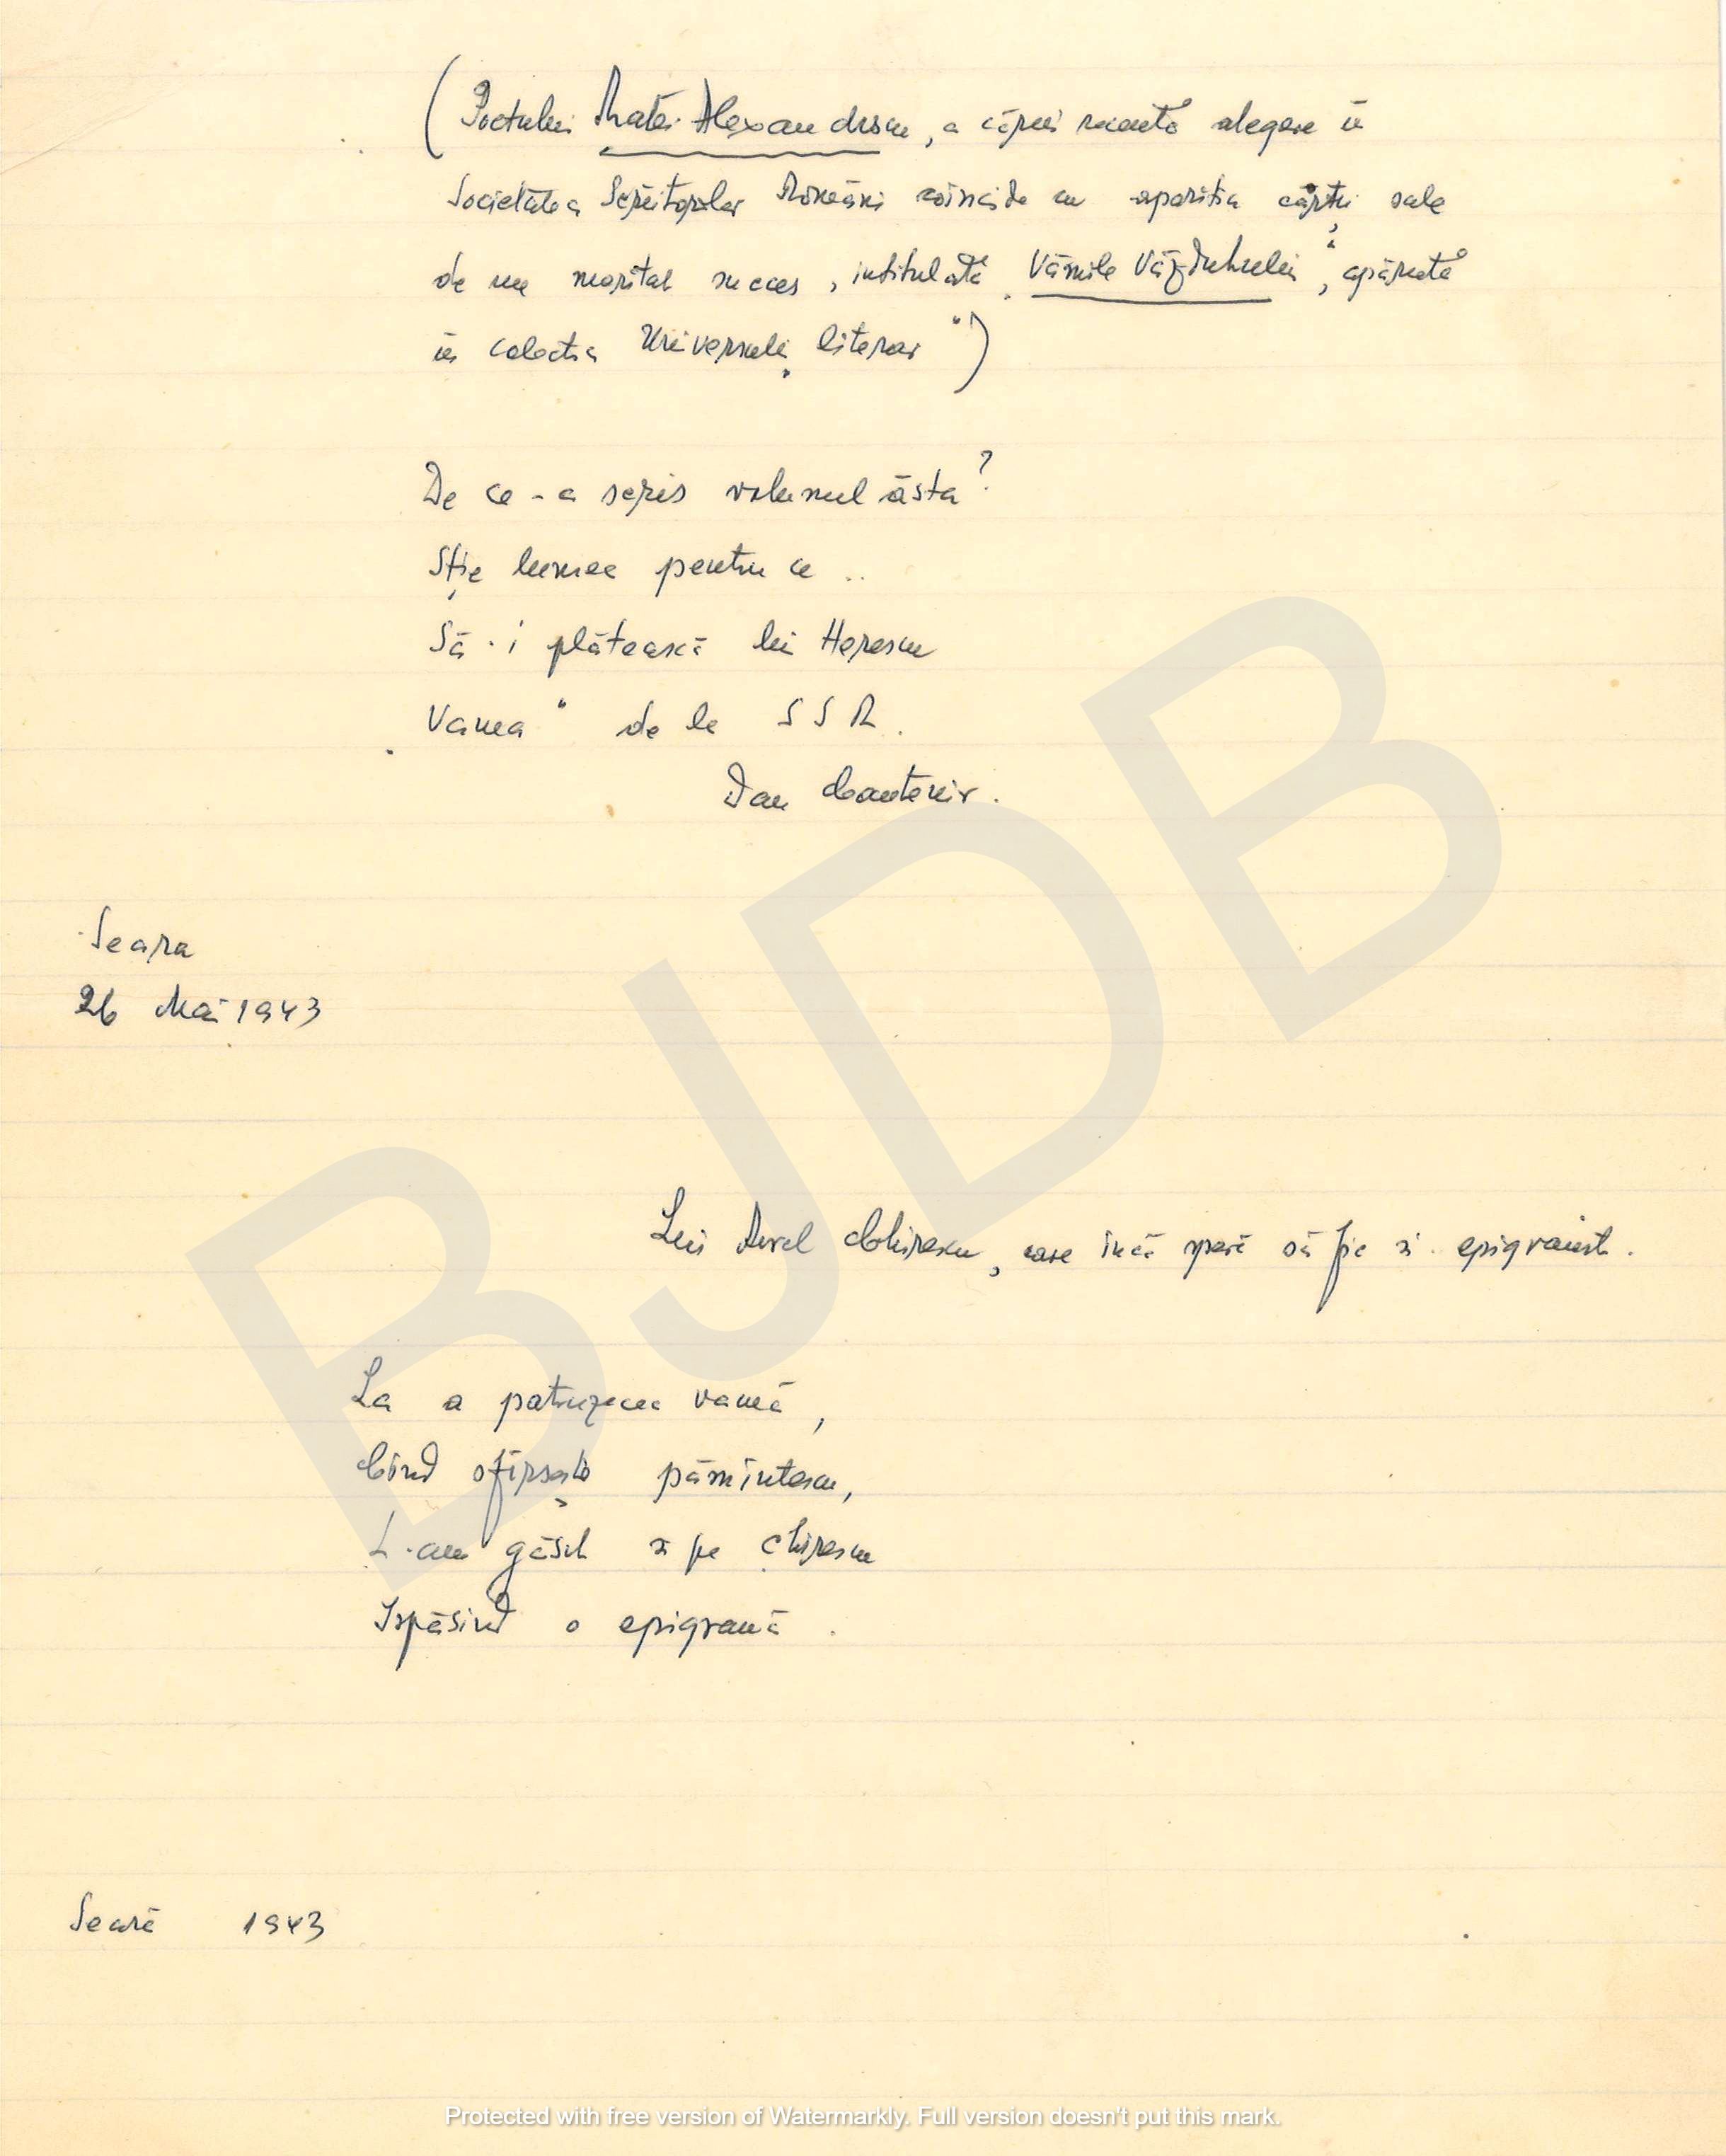 (Poetului Matei Alexandrescu, a cărui recentă alegere în
Societatea Scriitorilor Români coincide cu apariția cărții sale
de un meritat succes, intitulată „Vămile Văzduhului", apărută
în colecția „Universului literar")
De ce-a scris volumul ăsta?
Știe lumea pentru ce..
Să-i plătească lui Herescu
„Vama" de la SSR.
Dan Cantemir.
Seara
26 Mai 1943
Lui Aurel Chirescu, care încă speră să fie și epigramist.
La a patruzecea vamă,
Când sfârșește pămîntescu,
L-am găsit și pe Chirescu
Ispășind o epigramă.
Seară 1943
BJDB
Protected with free version of Watermarkly. Full version doesn't put this mark.